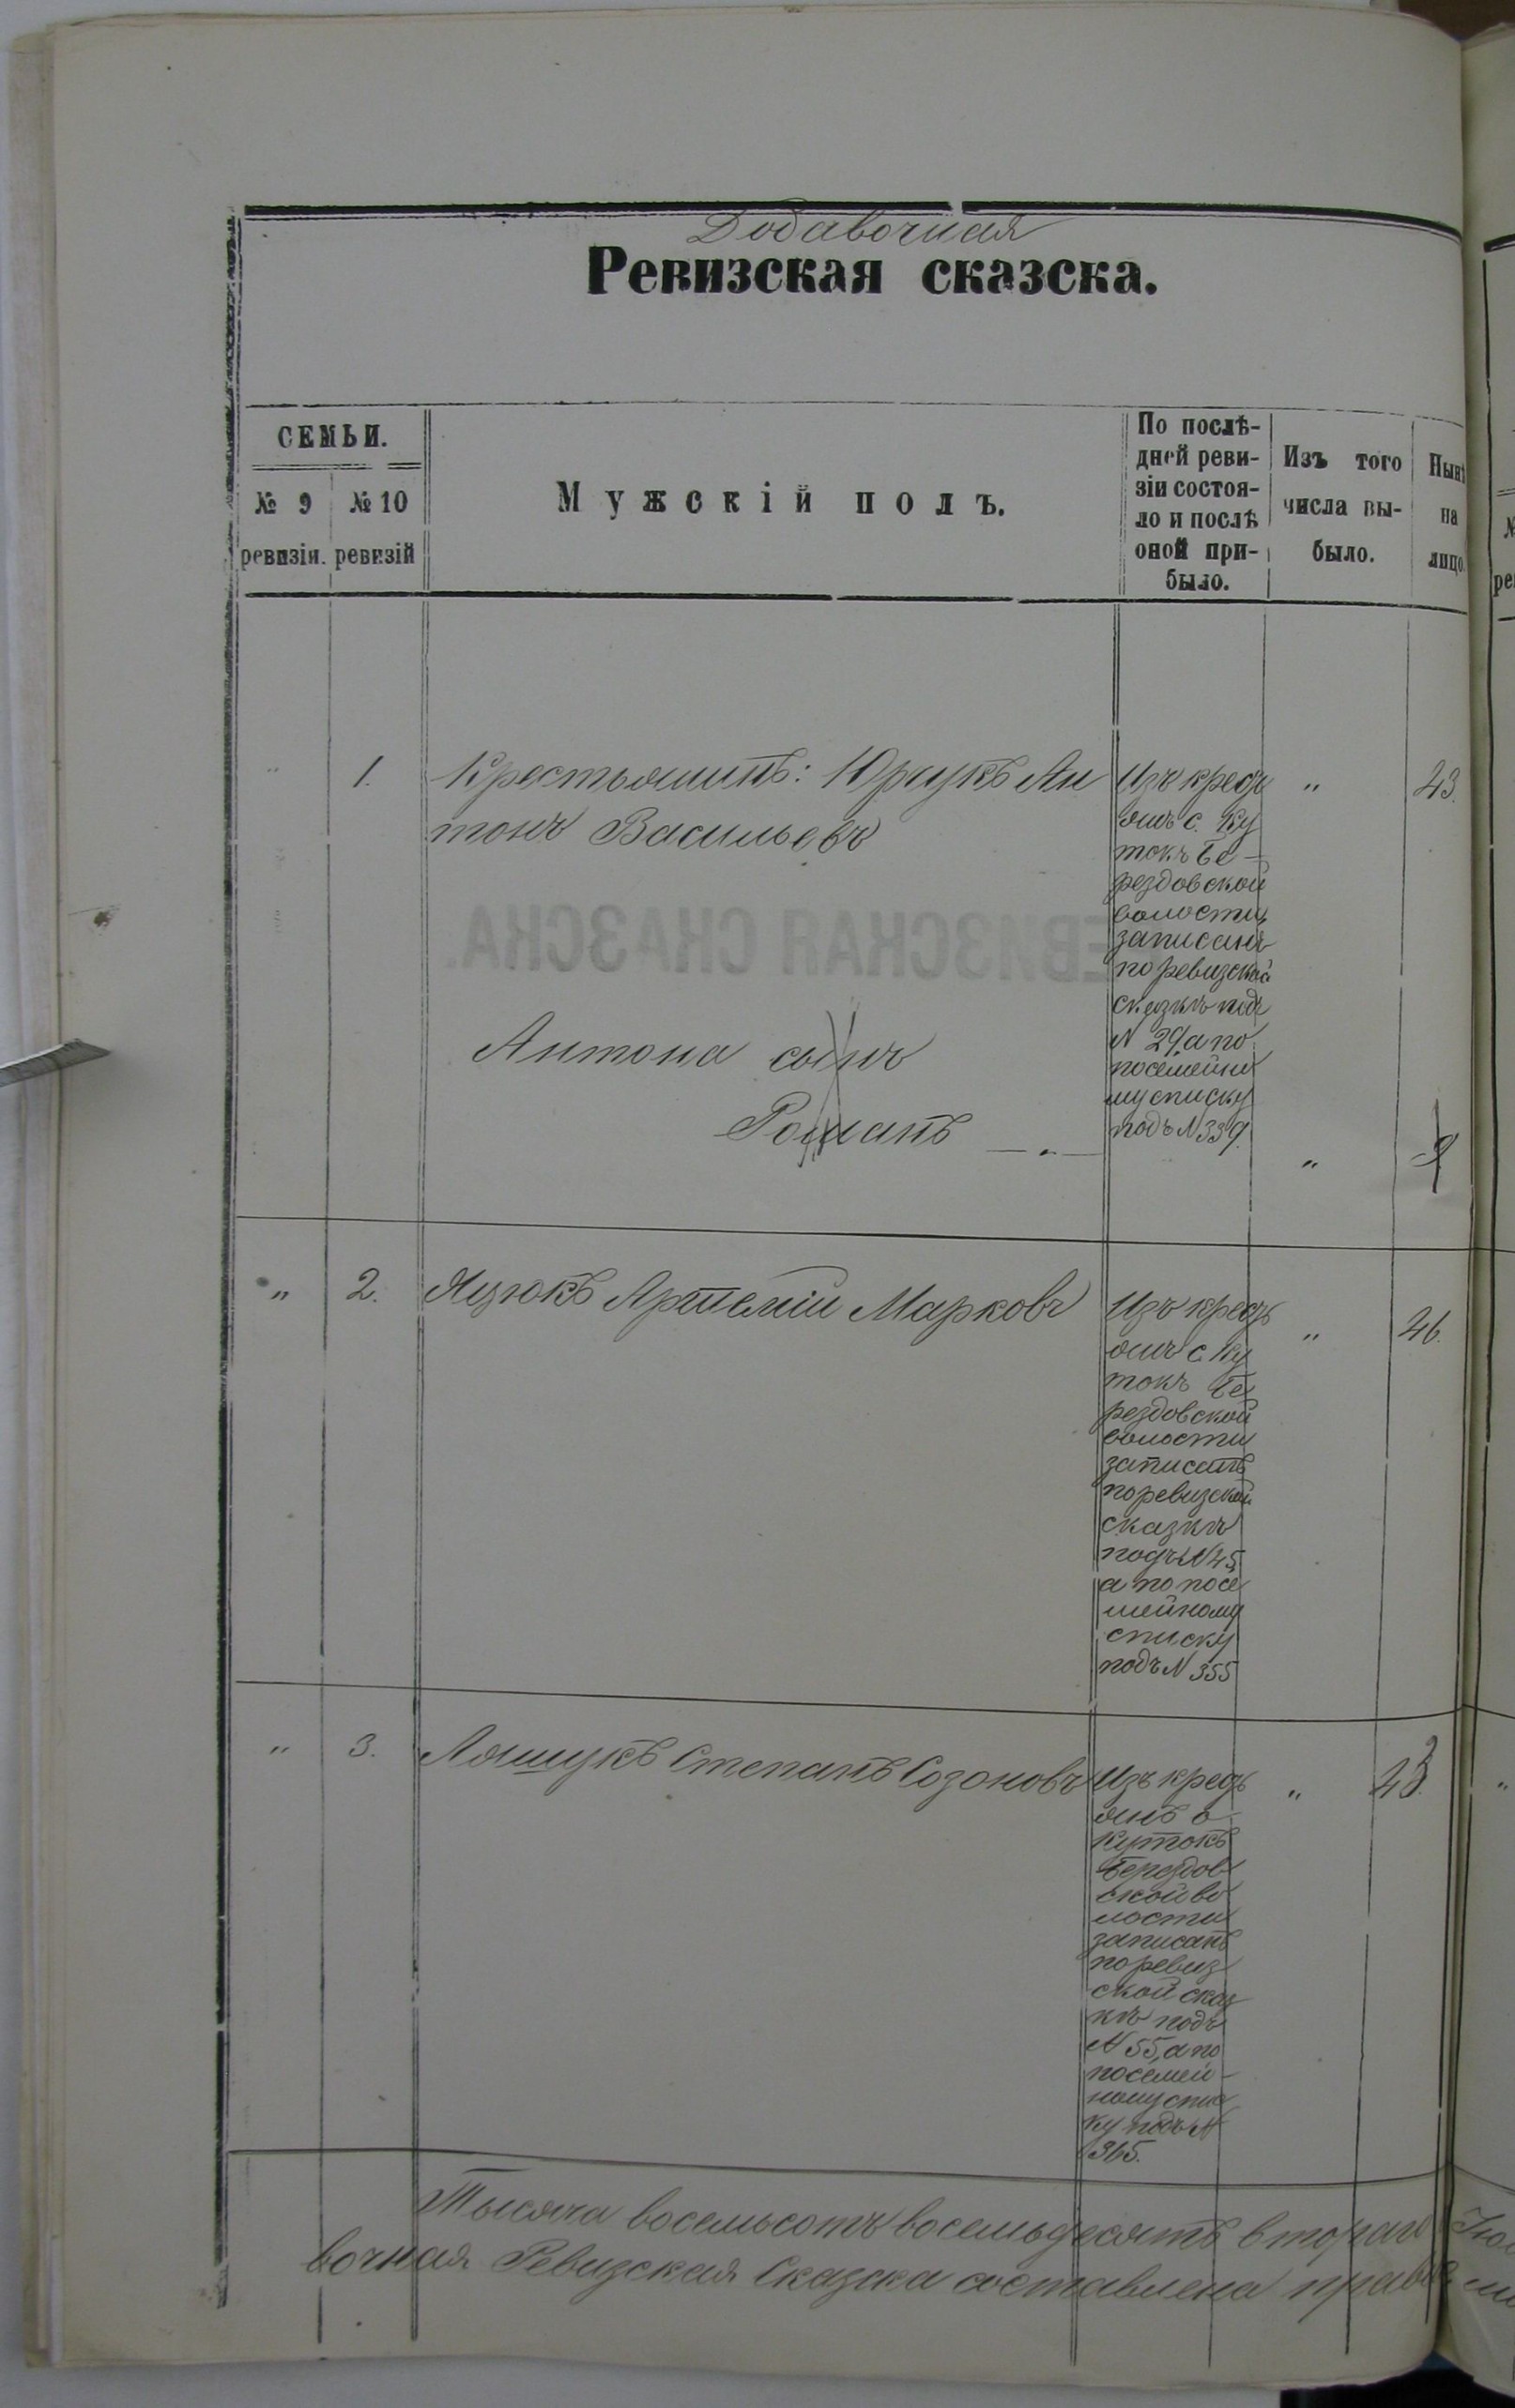 Додавочная
Ревизская сказска.
СЕМЬИ.
№ 9 ревизіи.
№ 10 ревизій
Мужскій полъ.
По послѣ-
дней реви-
зіи состоя-
ло и послѣ
оной при-
было.
Изъ того
числа вы-
было.
Нынѣ
на
лицо.
" 1. Крестьянинъ: Юрчукъ Ан
тонъ Васильевъ
Изъ крест
янъ с. Ку
токъ Бе-
рездовской
волости,
записанъ
по ревизской
сказкѣ подъ
N 29, а по
посемейно
му списку
подъ N 339.
" 43.
Антона сынъ
Романъ — " —
" 9
" 2. Яцюкъ Артемій Марковъ
Изъ крест
янъ с. Ку
токъ Бе
рездовской
волости
записанъ
по ревизской
сказкѣ
подъ N 45,
а по посе
мейному
списку
подъ N 355
" 46.
" 3. Ляшукъ Степанъ Созоновъ
Изъ крест
янъ с
Кутокъ
Берездов
ской во
лости
записанъ
по ревиз
ской сказ
кѣ подъ
N 55, а по
посемей-
ному спис
ку подъ N
365.
" 43.
Тысяча восемьсотъ восемьдесятъ втораго
вочная Ревизская Сказска составлена